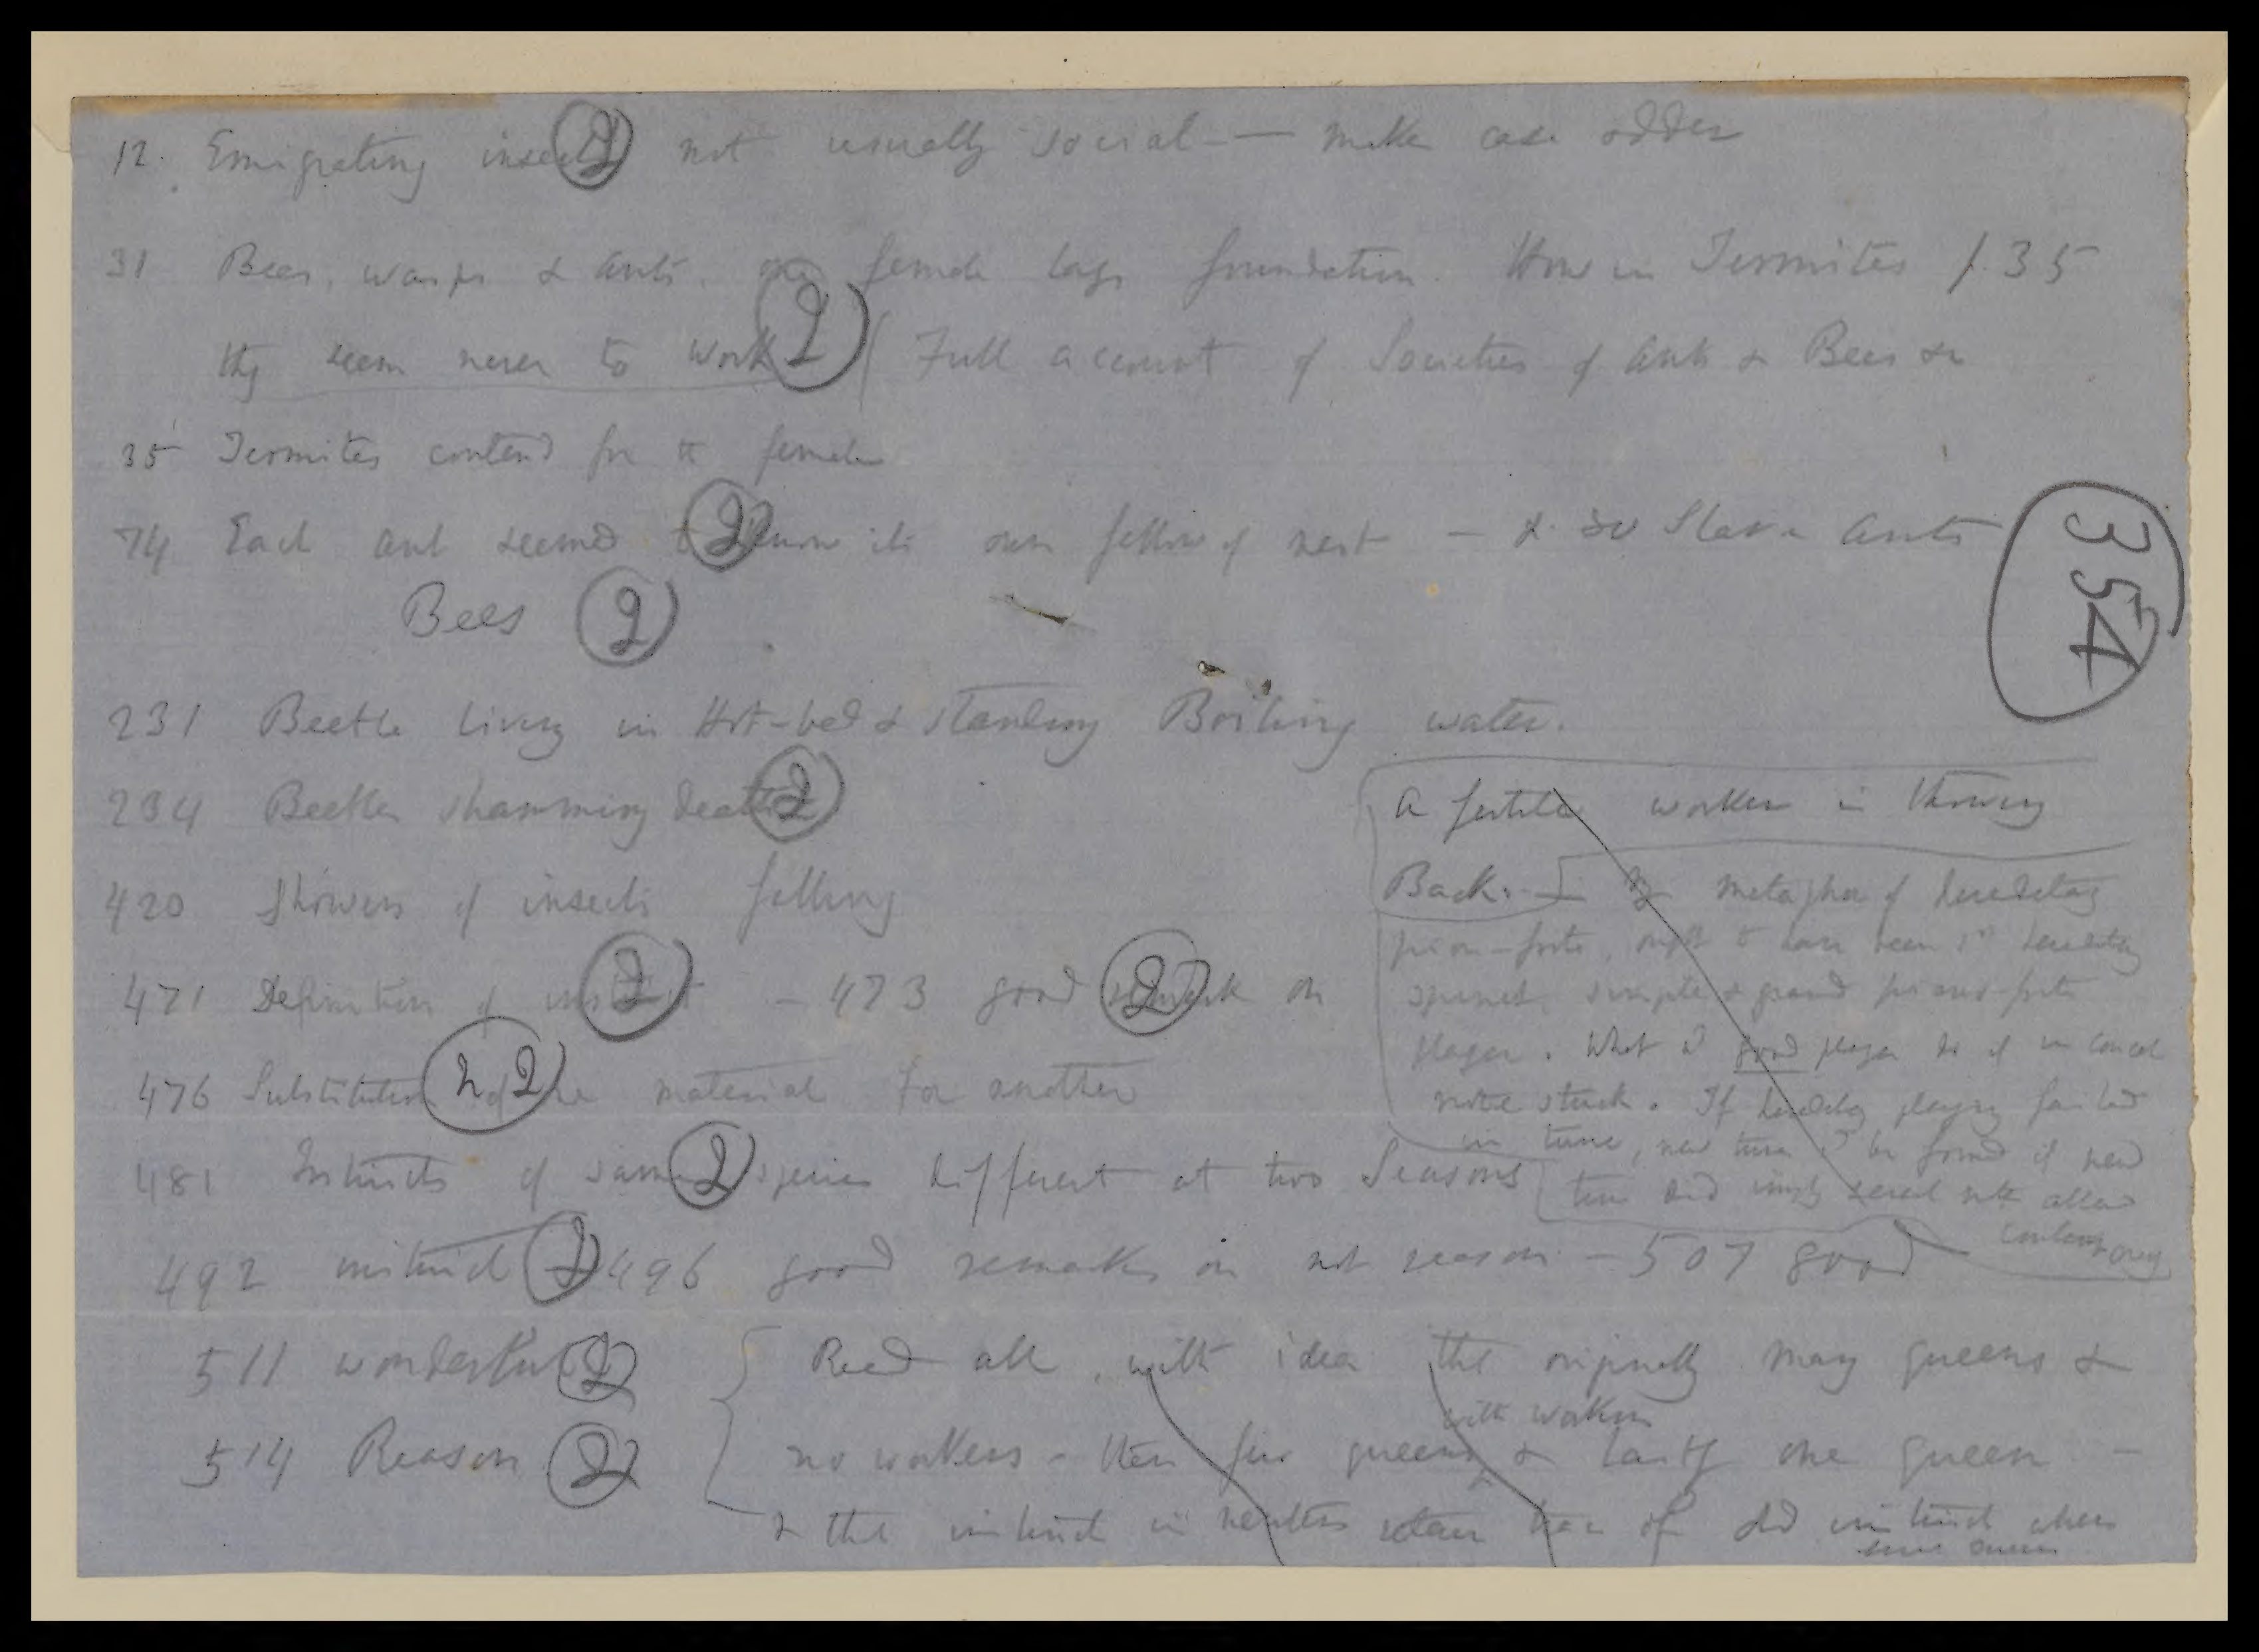 12. Emigrating insects (2) not usually social — make case odder
31 Bees, wasps & ants. one female lays foundation. How in Termites p. 35
they seem never to work (2) ( Full account of Societies of ants & Bees &c
35 Termites contend for the female
74 Each ant seemed to (2) know its own fellow of nest — & so Slave ants
Bees (2)
354
231 Beetle living in Hot-bed & standing Boiling water.
234 Beetles shamming death (2)
420 Showers of insects falling
471 Definition of instinct (2) — 473 good (2) remark on
476 Substitution of one (22) material for another
481 Instincts of same (2) species different at two Seasons
492 instinct (2) 496 good remarks on not reason — 507 good
511 wonderful (2)
514 Reason (2)
A fertile worker is throwing
Back. — metaphor of hereditary
piano-forte, ought to have been 1st hereditary
spinet, simple & grand piano-forte
player. What a good player do if in concert
note stuck. If hereditary playing failed
in tune, new tune be found if new
tune did several note
Read all, with idea that originally many queens &
no workers — then few queens with workers & lastly one queen —
& that instinct in neuters retain of old instinct when
some queens